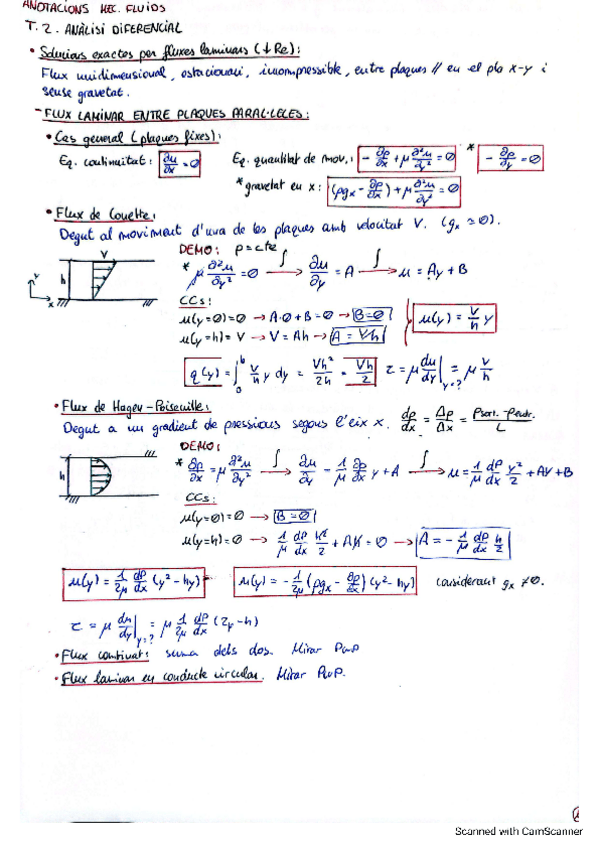 ANOTACIONS MEC. FLUIDS
T.2. ANÀLISI DIFERENCIAL
• Solucions exactes per fluxes laminars (↓Re):
Flux unidimensional, estacionari, incompressible, entre plaques // en el pla x-y i
sense gravetat.
- FLUX LAMINAR ENTRE PLAQUES PARAL·LELES:
• Cas general (plaques fixes):
Eq. continuitat: ∂u/∂x = 0 Eq. quantitat de mov.: -∂p/∂x + μ ∂²u/∂y² = 0 * -∂p/∂y = 0
*gravetat en x: (ρgx - ∂p/∂x) + μ ∂²u/∂y² = 0
• Flux de Couette:
Degut al moviment d'una de les plaques amb velocitat V. (gx = 0).
DEMO: p = cte
* μ ∂²u/∂y² = 0 ∫→ ∂u/∂y = A ∫→ u = Ay + B
CCs:
u(y=0) = 0 → A·0 + B = 0 → B = 0
u(y=h) = V → V = Ah → A = V/h
u(y) = V/h y
q(y) = ∫₀ʰ V/h y dy = Vh²/2h = Vh/2 τ = μ du/dy|y=? = μ V/h
• Flux de Hagen-Poiseuille:
Degut a un gradient de pressions segons l'eix x. dp/dx = Δp/Δx = Psort. - Pentr./L
DEMO:
* ∂p/∂x = μ ∂²u/∂y² ∫→ ∂u/∂y = 1/μ ∂p/∂x y + A ∫→ u = 1/μ dP/dx y²/2 + AY + B
CCs:
u(y=0) = 0 → B = 0
u(y=h) = 0 → 1/μ dP/dx h²/2 + Ah = 0 → A = -1/μ dP/dx h/2
u(y) = 1/2μ dP/dx (y² - hy) u(y) = -1/2μ (ρgx - ∂p/∂x)(y² - hy) considerant gx ≠ 0.
τ = μ du/dy|y=? = μ 1/2μ dP/dx (2y - h)
• Flux combinat: suma dels dos. Mirar PwP
• Flux laminar en conducte circular. Mirar PwP.
V
h
Y
X
h
Scanned with CamScanner